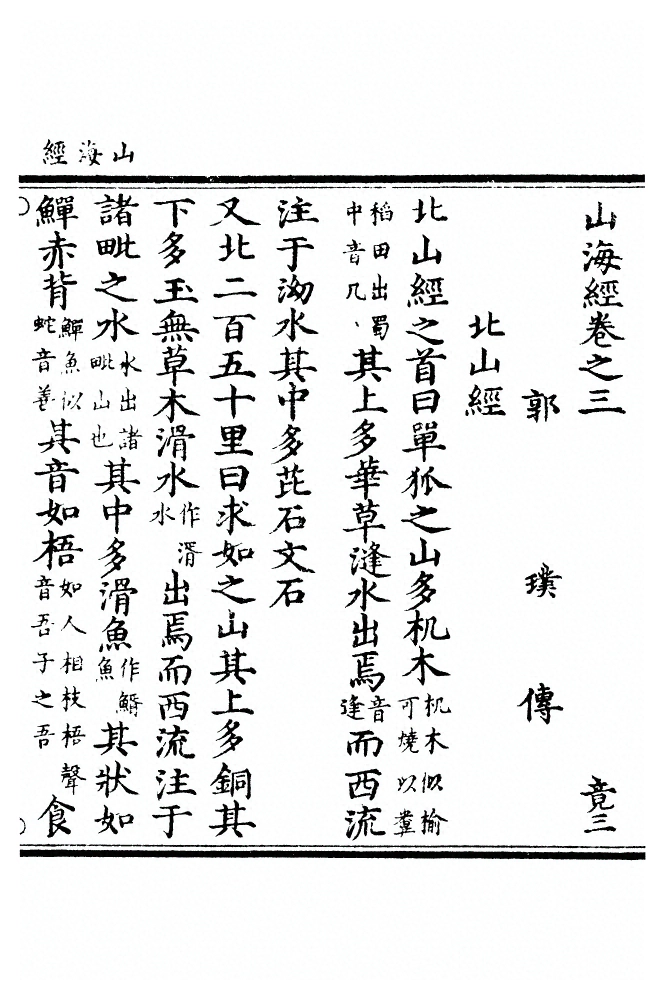 山海經
山海經卷之三 竟三
郭 璞 傳
北山經
北山經之首曰單狐之山多机木机木似榆可燒以糞
稻田出蜀中音几、其上多華草漨水出焉音逢而西流
注于泑水其中多茈石文石
又北二百五十里曰求如之山其上多銅其
下多玉無草木滑水作湑水出焉而西流注于
諸毗之水水出諸毗山也其中多滑魚作魚其狀如
鱓赤背鱓魚似蛇音善其音如梧如人相枝梧聲音吾子之吾食